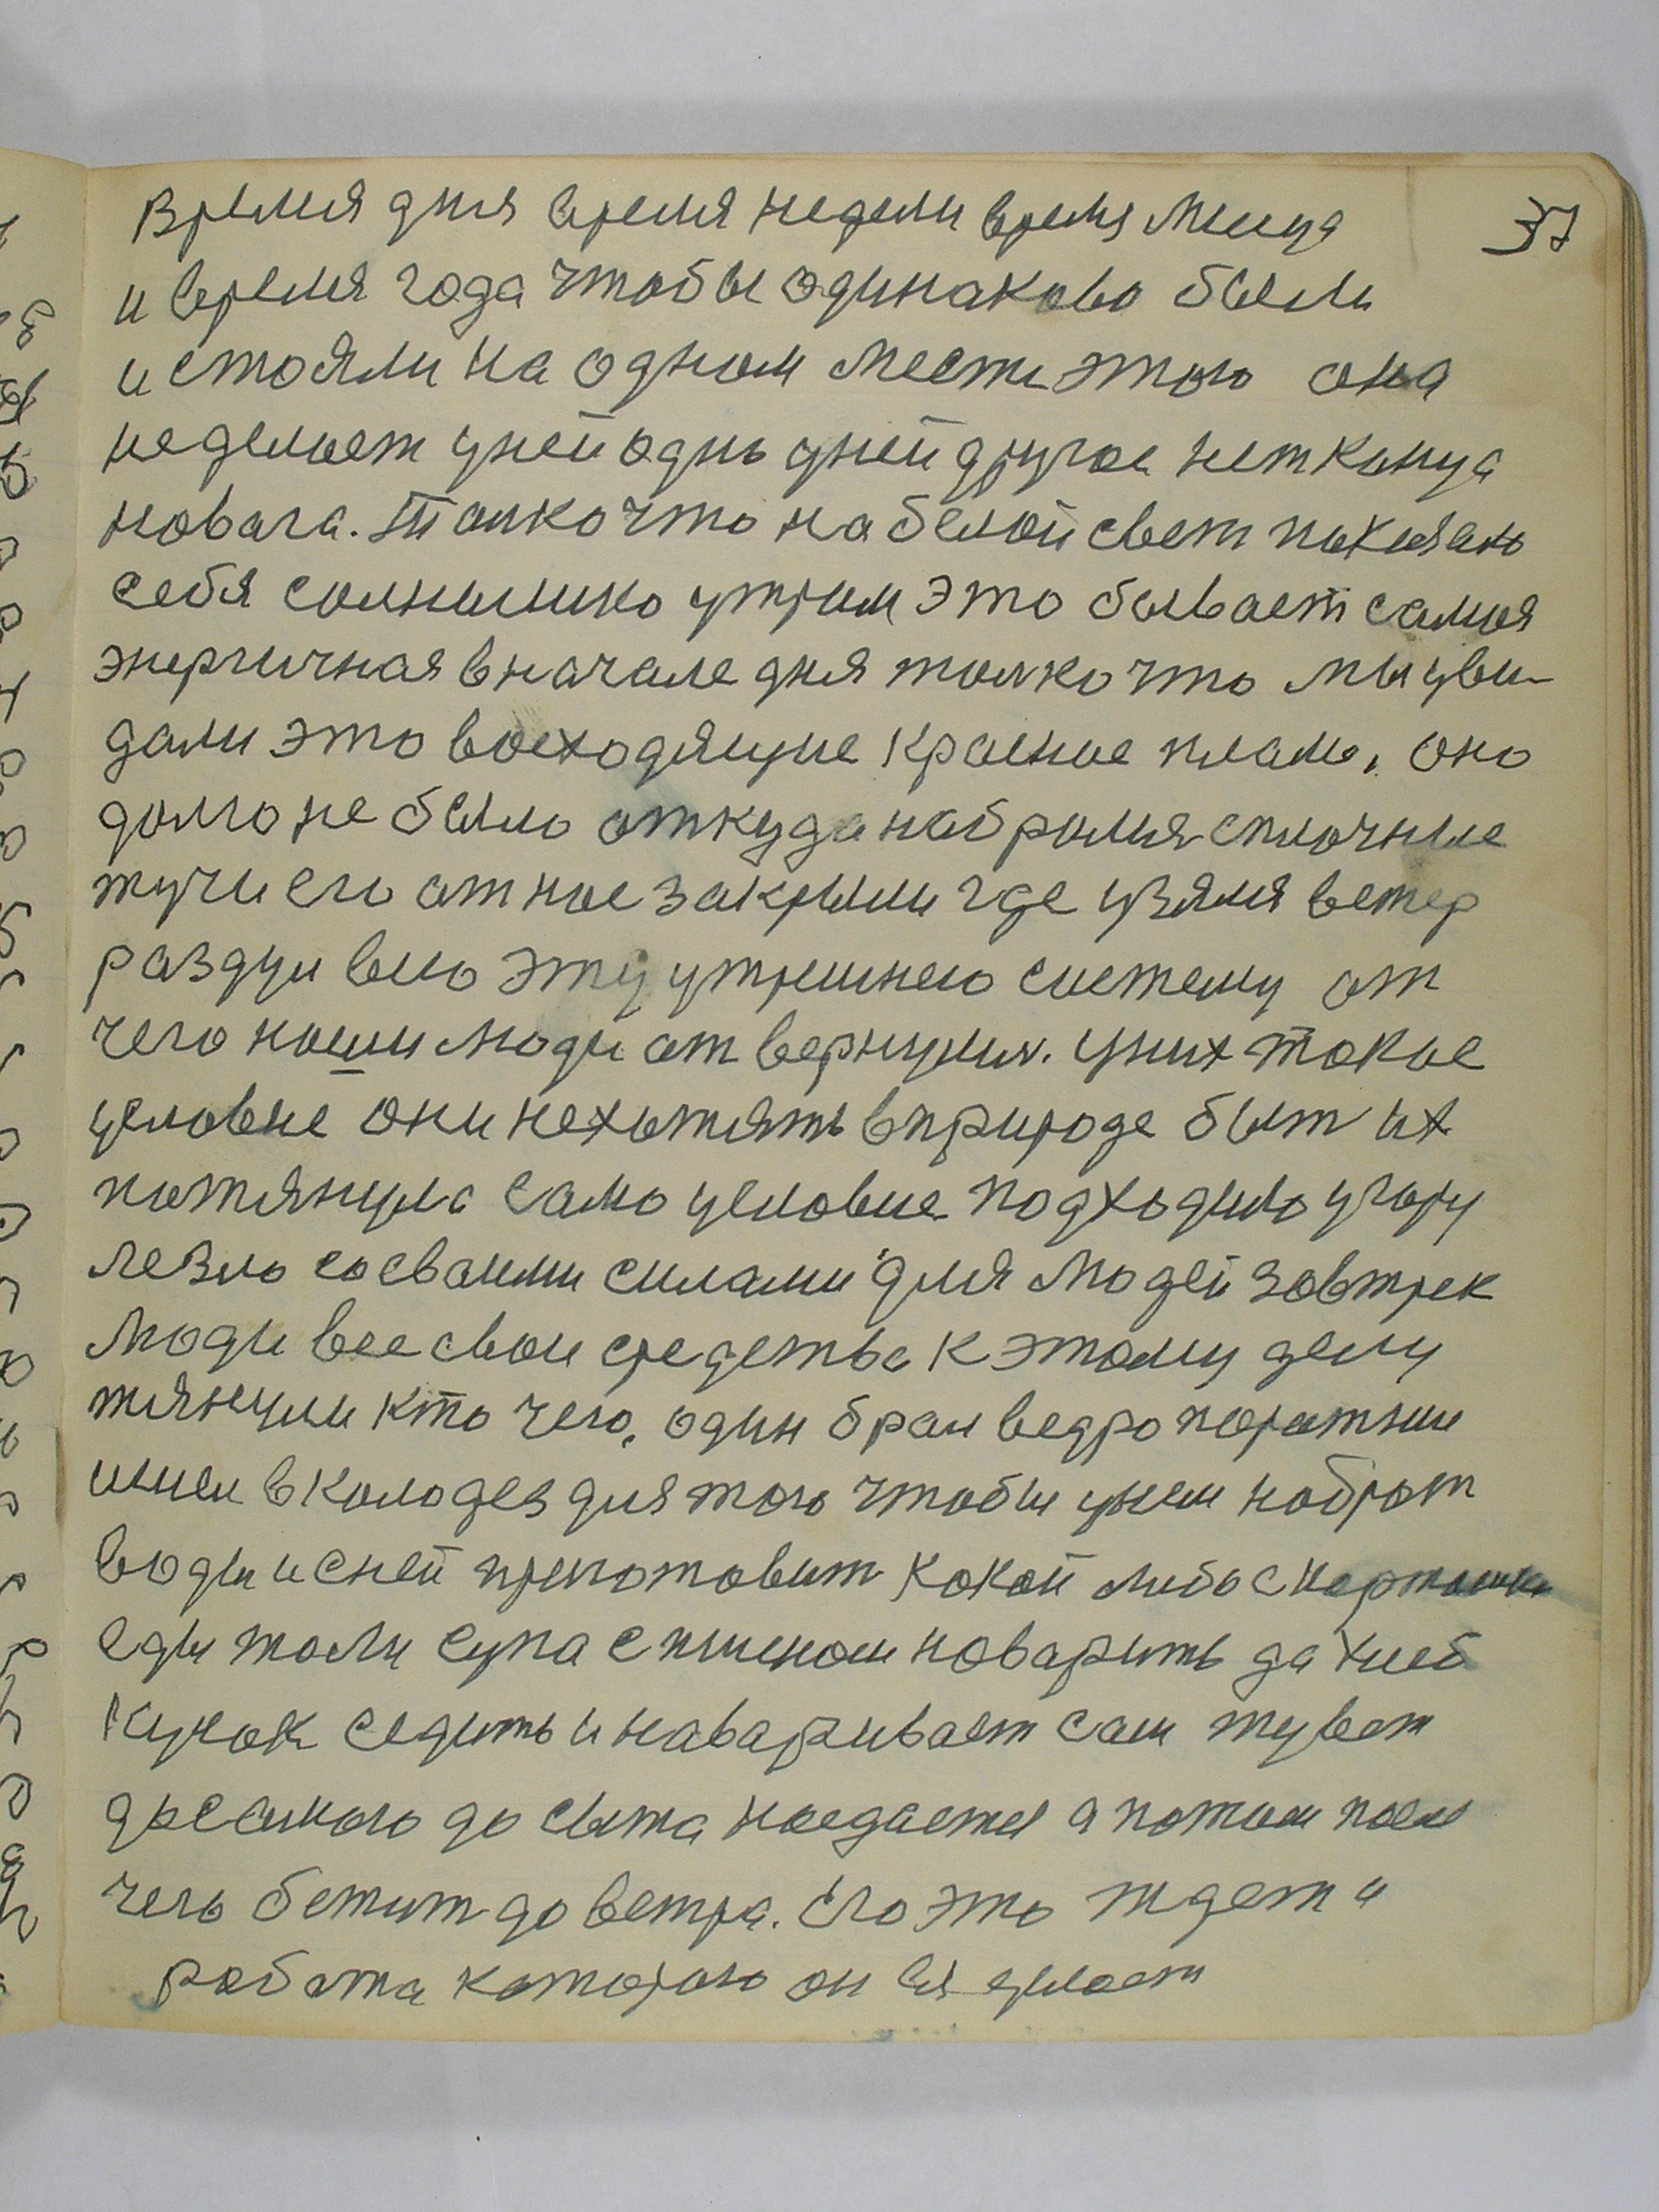 37
Время дня время недели время месца
и время года чтобы одинаково были
и стояли на одном месте этого она
неделает уней одно уней другое нет конца
новага. Толко что на белой свет показало
себя солнышко утром это бывает самая
энергичная вначале дня толко что мы уви-
дали это восходящие красное пламе, оно
долго не было откуда набролися сплочные
тучи его от нас закрыли где узялся ветер
раздул всю эту утрешнею систему от
чего наши люди отвернулис. уних такое
условие они нехотять вприроде быт их
потянула само условие подходило угору
лезло сосваими силами для людей завтрек
люди все свои средства к этому делу
тянули кто чего, один брал ведро поратни
шли в колодез для того чтобы унем набрат
воды и сней приготовит какой либо скартошки
еды толи супа спшеном поварить да хлеб
кусок седить и наваривает сам жувет
досамого до сыта наедается а потом после
чего бежит до ветра. Его это ждет и
работа каторою он ея делает